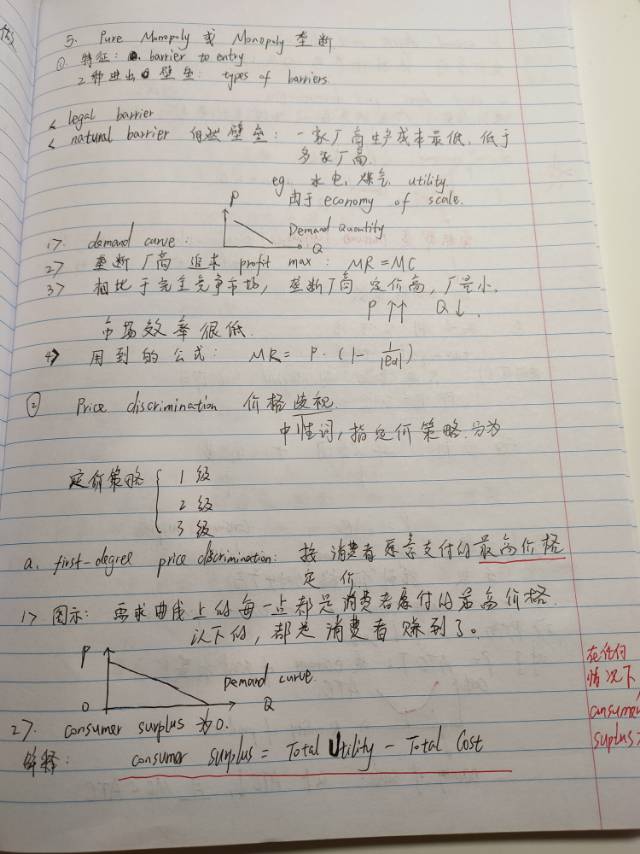 5. Pure Monopoly 或 Monopoly 垄断
① 特征: barrier to entry
2种进出壁垒: types of barriers
< legal barrier
< natural barrier 自然壁垒: 一家厂商生产成本最低, 低于
多家厂商.
eg. 水电, 煤气, utility
由于 economy of scale.
P
1>. demand curve:
Demand Quantity
Q
2> 垄断厂商追求 profit max: MR=MC
3> 相比于完全竞争市场, 垄断厂商定价高, 产量小.
P↑↑ Q↓.
市场效率很低.
4> 用到的公式: MR= P·(1-1/|Ed|)
② Price discrimination 价格歧视.
中性词, 指定价策略. 分为
定价策略 { 1级
2级
3级
a. first-degree price discrimination: 按消费者愿意支付的最高价格
定价
1> 图示: 需求曲线上的每一点都是消费者愿付的最高价格.
以下的, 都是消费者赚到了。
P
Demand curve
O
Q
2>. consumer surplus ≥0.
解释: consumer surplus = Total Utility - Total Cost
在任何
情况下
consumer
suplus